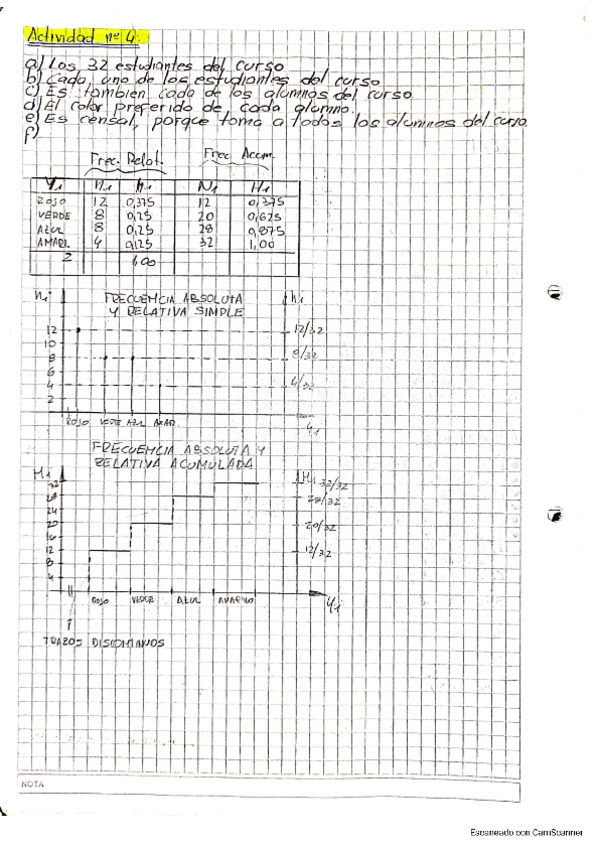 Actividad nº 4.
a) Los 32 estudiantes del curso
b) Cada uno de los estudiantes del curso
c) Es tambien cada de los alumnos del curso
d) El color preferido de cada alumno.
e) Es censal, porque toma a todos los alumnos del curso.
f)
Frec. Relat. Frec Acum.
Y1 n1 h1 N1 H1
ROJO 12 0,375 12 0,375
VERDE 8 0,25 20 0,625
AZUL 8 0,25 28 0,875
AMARI. 4 0,125 32 1,00
Σ 1,00
n1 FRECUENCIA ABSOLUTA h1
Y RELATIVA SIMPLE
12 12/32
10
8 8/32
6
4 4/32
2
ROJO VERDE AZUL AMAR. Y1
FRECUENCIA ABSOLUTA Y
RELATIVA ACUMULADA
N1 H1
32 32/32
28 28/32
24
20 20/32
16
12 12/32
8
4
ROJO VERDE AZUL AMARILLO Y1
TRAZOS DISCONTINUOS
NOTA
Escaneado con CamScanner